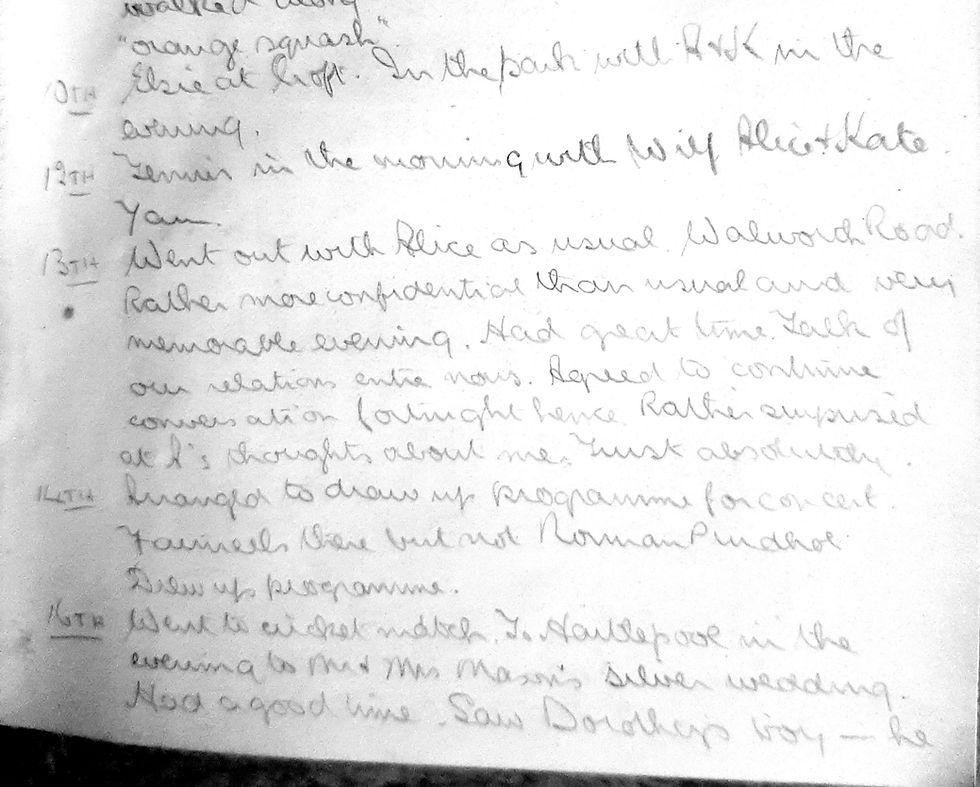 walked along
"orange squash".
10TH Elsie at Croft. In the park with A+K in the
evening.
12TH Tennis in the morning with Wilf Alice+Kate.
Yam.
13TH Went out with Alice as usual. Walworth Road.
Rather more confidential than usual and very
memorable evening. Had great time. Talk of
our relations entre nous. Agreed to continue
conversation fortnight hence. Rather surprised
at A's thoughts about me. Trust absolutely.
14TH Arranged to draw up programme for concert.
there but not Norman
Drew up programme.
16TH Went to cricket match. To Hartlepool in the
evening to Mr+Mrs Mason's silver wedding.
Had a good time. Saw Dorothy's boy — he